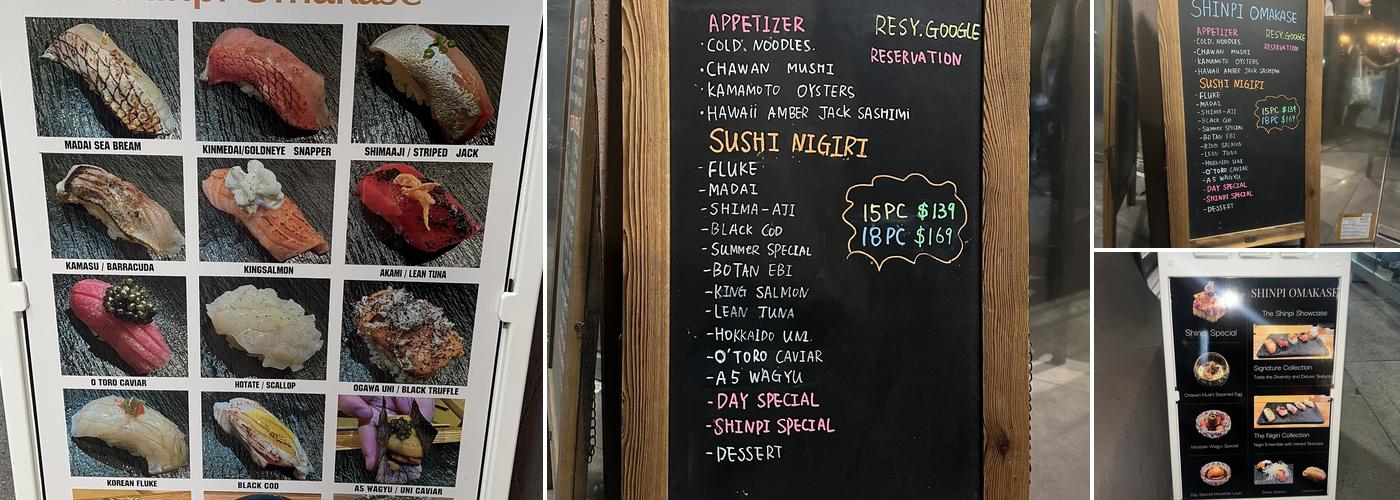 Shinpi Omakase
MADAI SEA BREAM
KINMEDAI/GOLDNEYE SNAPPER
SHIMAAJI / STRIPED JACK
KAMASU / BARRACUDA
KINGSALMON
AKAMI / LEAN TUNA
O TORO CAVIAR
HOTATE / SCALLOP
OGAWA UNI / BLACK TRUFFLE
KOREAN FLUKE
BLACK COD
A5 WAGYU / UNI CAVIAR
APPETIZER
RESY.GOOGLE
RESERVATION
·COLD. NOODLES.
·CHAWAN MUSHI
·KAMAMOTO OYSTERS
·HAWAii AMBER JACK SASHIMI
SUSHI NIGIRI
-FLUKE
-MADAI
-SHIMA-AJI
-BLACK COD
-SUMMER SPECIAL
-BOTAN EBI
-KING SALMON
-LEAN TUNA
-HOKKAIDO UNI.
-O'TORO CAVIAR
-A5 WAGYU
-DAY SPECIAL
-SHINPI SPECIAL
-DESSERT
15PC $139
18PC $169
SHINPI OMAKASE
APPETIZER
RESY.GOOGLE
RESERVATION
·COLD. NOODLES.
·CHAWAN MUSHI
·KAMAMOTO OYSTERS
·HAWAii AMBER JACK SASHIMI
SUSHI NIGIRI
-FLUKE
-MADAI
-SHIMA-AJI
-BLACK COD
-SUMMER SPECIAL
-BOTAN EBI
-KING SALMON
-LEAN TUNA
-HOKKAIDO UNI.
-O'TORO CAVIAR
-A5 WAGYU
-DAY SPECIAL
-SHINPI SPECIAL
-DESSERT
15PC $139
18PC $169
SHINPI OMAKASE
The Shinpi Showcase
Shinpi Special
Signature Collection
Taste the Diversity and Deluxe Textures
Chawan Mushi Steamed Egg
The Nigiri Collection
Nigiri Ensemble with Varied Textures
Miyazaki Wagyu Special
Day Special Monkfish Liver